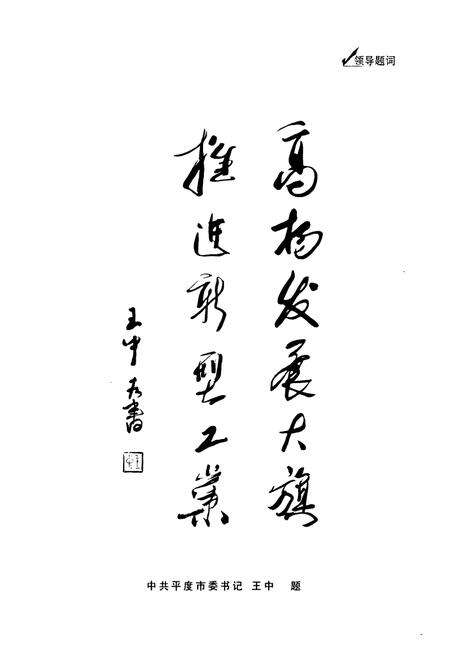 领导题词
高杨发展大旗
推进新型工业
王中书
中共平度市委书记 王中 题